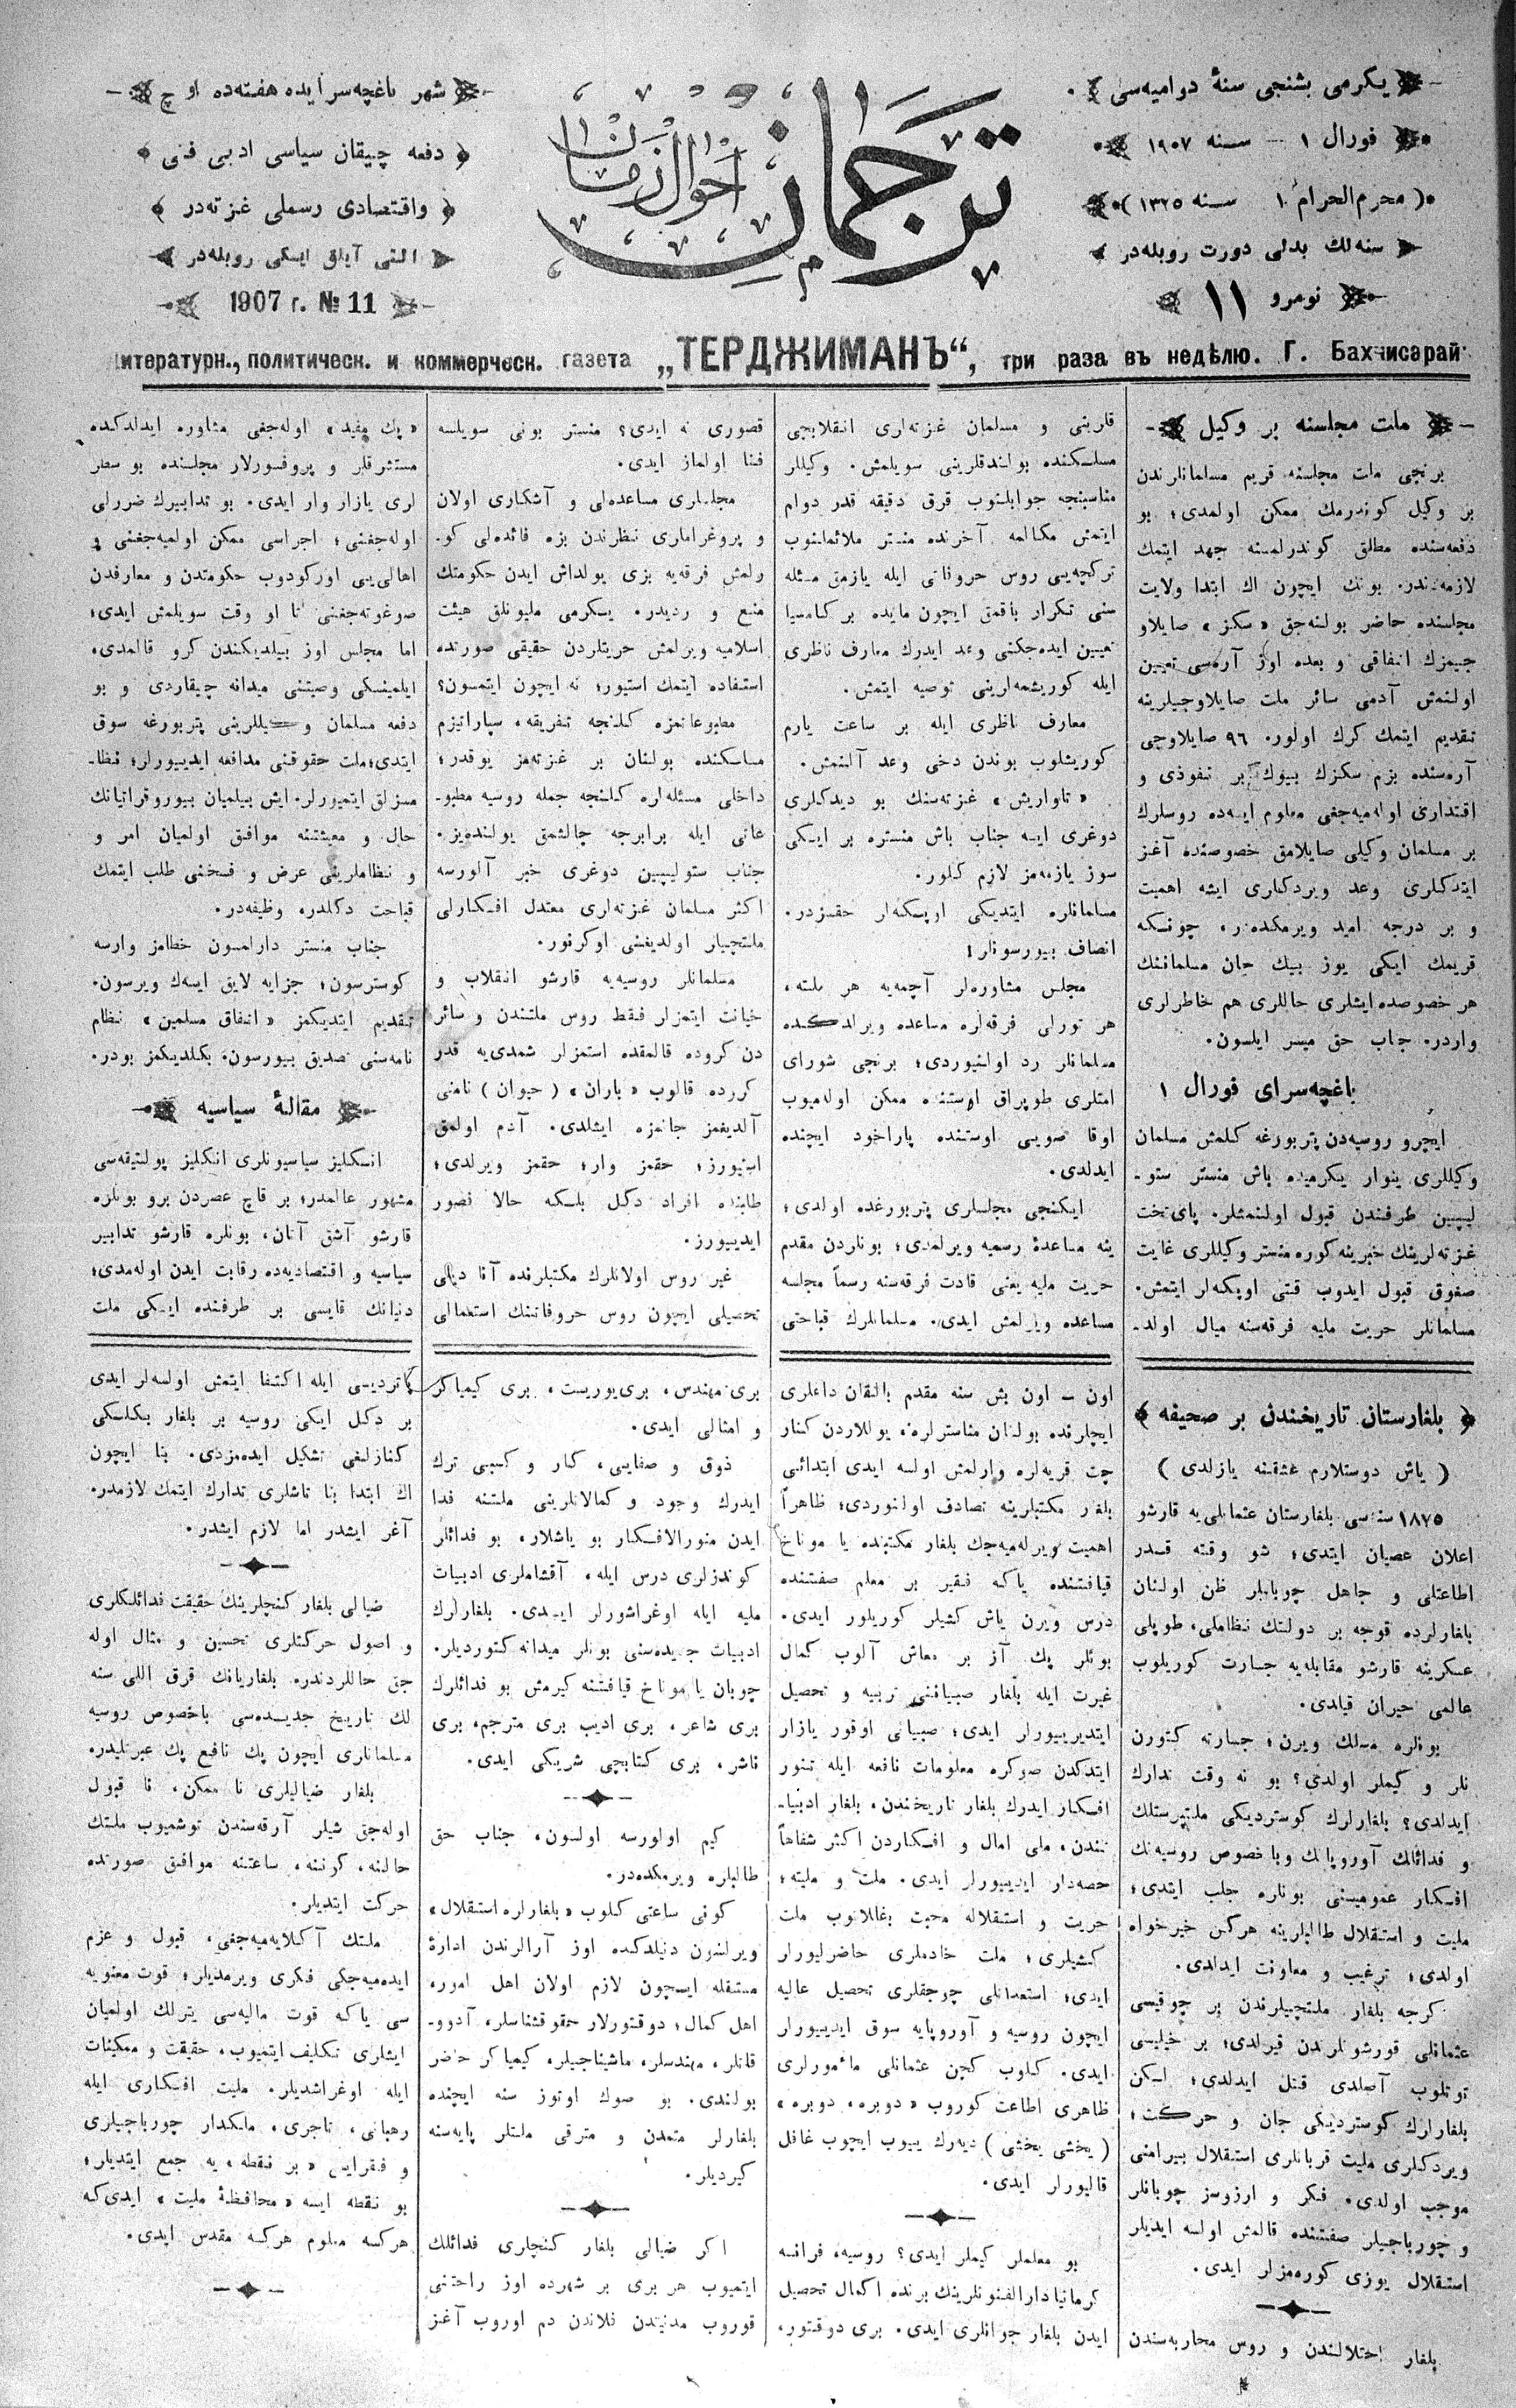 يكرمی بشنجی سنهٔ دوامیه‌سی
فورال ١ — سنه ١٩٠٧
(محرم الحرام ١٠ سنه ١٣٢٥)
سنه‌لك بدلی دورت روبله‌در
نومرو ١١
ترجمان احوال زمان
شهر باغچه‌سرایده هفته‌ده اوچ
دفعه چیقان سیاسی ادبی فنی
واقتصادی رسملی غزته‌در
التی آیلق ایكی روبله‌در
1907 г. № 11
литературн., политическ. и коммерческ. газета „ТЕРДЖИМАНЪ“, три раза въ недѣлю. Г. Бахчисарай
ملت مجلسنه بر وكیل
برنجی ملت مجلسنه قریم مسلمانلرندن
بر وكیل كوندرمك ممكن اولمدی؛ بو
دفعه‌سنده مطلق كوندرلمسنه جهد ایتمك
لازمه‌ندر. بونك ایچون اك ابتدا ولایت
مجلسنده حاضر بولنه‌جق «سكز» صایلاو
جیمزك اتفاقی و بعده اوز آره‌سی تعیین
اولنمش آدمی سائر ملت صایلاوجیلرینه
تقدیم ایتمك كرك اولور. ٩٦ صایلاوجی
آره‌سنده بزم سكزك بیوك بر نفوذی و
اقتداری اوله‌میه‌جغی معلوم ایسه‌ده روسلرك
بر مسلمان وكیلی صایلامق خصوصنده آغز
ایتدكلری وعد ویردكلری ایشه اهمیت
و بر درجه امید ویرمكده‌در، چونكه
قریمك ایكی یوز بیك جان مسلماننك
هر خصوصده ایشلری حاللری هم خاطرلری
واردر. جناب حق میسر ایلسون.
باغچه‌سرای فورال ١
ایچرو روسیه‌دن پتربورغه كلمش مسلمان
وكیللری ینوار یكرمیده باش منستر ستو-
لیپین طرفندن قبول اولنمشلر. پای تخت
غزته‌لرینك خبرینه كوره منستر وكیللری غایت
صغوق قبول ایدوب قتی اوپكه‌لر ایتمش.
مسلمانلر حریت ملیه فرقه‌سنه میال اولد-
قارینی و مسلمان غزته‌لری انقلابجی
مسلكنده بولندقلرینی سویلمش. وكیللر
مناسبنجه جوابلنوب قرق دقیقه قدر دوام
ایتمش مكالمه آخرنده منستر ملائملنوب
تركچه‌یی روس حروفاتی ایله یازمق مسئله
سنی تكرار باقمق ایچون مایده بر كامسیا
تعیین ایده‌جكنی وعد ایدرك معارف ناظری
ایله كوریشمه‌لرینی توصیه ایتمش.
معارف ناظری ایله بر ساعت یارم
كوریشلوب بوندن دخی وعد آلنمش.
«تاواریش» غزته‌سنك بو دیدكلری
دوغری ایسه جناب باش منستره بر ایكی
سوز یازمه‌مز لازم كلور.
مسلمانلره ایتدیكی اوپكه‌لر حقسزدر.
انصاف بیورسونلر!
مجلس مشاوره‌لر آچمه‌یه هر ملته،
هر تورلی فرقه‌لره مساعده ویرلدكده
مسلمانلر رد اولنیوردی؛ برنجی شورای
امتلری طوپراق اوستنده ممكن اوله‌میوب
اوقا صویی اوستنده پاراخود ایچنده
ایدلدی.
ایكنجی مجلسلری پتربورغده اولدی؛
ینه مساعدهٔ رسمیه ویرلمدی؛ بونلردن مقدم
حریت ملیه یعنی قادت فرقه‌سنه رسماً مجلسه
مساعده ویرلمش ایدی. مسلمانلرك قباحتی
قصوری نه ایدی؟ منستر بونی سویلسه
فنا اولماز ایدی.
مجلسلری مساعده‌لی و آشكاری اولان
و پروغراماری نظرندن بزه فائده‌لی كو-
رلمش فرقه‌یه بزی یولداش ایدن حكومتك
منع و ردیدر. یسكرمی ملیونلق هیئت
اسلامیه ویرلمش حریتلردن حقیقی صورتده
استفاده ایتمك استیور؛ نه ایچون ایتمسون؟
مطبوعاتمزه كلنجه تفریقه، سپاراتیزم
مسلكنده بولنان بر غزته‌مز یوقدر؛
داخلی مسئله‌لره كلنجه جمله روسیه مطبو-
عاتی ایله برابرجه چالشمق یولنده‌یز.
جناب ستولیپین دوغری خبر آلورسه
اكثر مسلمان غزته‌لری معتدل افكارلی
ملتچیلر اولدیغنی اوكرنور.
مسلمانلر روسیه‌یه قارشو انقلاب و
خیانت ایتمزلر فقط روس ملتندن و سائر
دن كروده قالمقده استمزلر شمدی‌یه قدر
كروده قالوب «باران» (حیوان) نامنی
آلدیغمز جانمزه ایشلدی. آدم اولمق
استیورز؛ حقمز وار؛ حقمز ویرلدی؛
طلبنده افراد دكل بلكه حالا قصور
ایدییورز.
غیر روس اولانلرك مكتبلرنده آنا دیلی
تحصیلی ایچون روس حروفاتنك استعمالی
«پك مفید» اوله‌جغی مشاوره ایدلدكده
مستشرقلر و پروفسورلار مجلسنده بو سطر
لری یازار وار ایدی. بو تدابیرك ضررلی
اوله‌جغنی؛ اجراسی ممكن اولمیه‌جغنی و
اهالی‌یی اوركودوب حكومتدن و معارفدن
صوغوته‌جغنی تا او وقت سویلمش ایدی؛
اما مجلس اوز بیلدیكندن كرو قالمدی.
ایلمینسكی وصیتنی میدانه چیقاردی و بو
دفعه مسلمان وكیللرینی پتربورغه سوق
ایتدی؛ ملت حقوقنی مدافعه ایدییورلر؛ نظا-
مسزلق ایتمیورلر. ایش بیلمیان بیوروقراتیانك
حال و معیشتنه موافق اولمیان امر و
و نظاملرینی عرض و فسخنی طلب ایتمك
قباحت دكلدر، وظیفه‌در.
جناب منستر دارلمسون خطامز وارسه
كوسترسون؛ جزایه لایق ایسه‌ك ویرسون.
تقدیم ایتدیكمز «اتفاق مسلمین» نظام
نامه‌سنی تصدیق بیورسون. بكلدیكمز بودر.
مقالهٔ سیاسیه
انكلیز سیاسیونلری انكلیز پولتیقه‌سی
مشهور عالمدر؛ بر قاچ عصردن برو بونلره
قارشو آشق آتان، بونلره قارشو تدابیر
سیاسیه و اقتصادیه‌ده رقابت ایدن اوله‌مدی؛
دنیانك قایسی بر طرفنده ایكی ملت
بلغارستان تاریخندن بر صحیفه
(یاش دوستلارم عشقنه یازلدی)
١٨٧٥ سنه‌سی بلغارستان عثمانلی‌یه قارشو
اعلان عصیان ایتدی؛ شو وقته قدر
اطاعتلی و جاهل چوبانلر ظن اولنان
بلغارلرده قوجه بر دولتك نظاملی، طوپلی
عسكرینه قارشو مقابله‌یه جسارت كوریلوب
عالمی حیران قیلدی.
بونلره مسلك ویرن؛ جسارته كتورن
نلر و كیملر اولدی؟ بو نه وقت تدارك
ایدلدی؟ بلغارلرك كوستردیكی ملتپرستلك
و فدائلك آوروپانك وباخصوص روسیه‌نك
افكار عمومیسنی بونلره جلب ایتدی؛
ملیت و استقلال طالبلرینه هركس خیرخواه
اولدی؛ ترغیب و معاونت ایدلدی.
كرچه بلغار ملتچیلرندن پر چوقیسی
عثمانلی قورشونلرندن قیرلدی؛ بر خیلیسی
توتلوب آصلدی قتل ایدلدی؛ لكن
بلغارلرك كوستردیكی جان و حركت؛
ویردكلری ملیت قربانلری استقلال بیرامنی
موجب اولدی. فكر و ارزوسز چوبانلر
و چورباجیلر صفتنده قالمش اولسه ایدیلر
استقلال یوزی كوره‌مزلر ایدی.
بلغار اختلالندن و روس محاربه‌سندن
اون — اون بش سنه مقدم بالقان داغلری
ایچلرنده بولنان مناسترلره، یوللاردن كنار
چت قریه‌لره وارلمش اولسه ایدی ابتدائی
بلغار مكتبلرینه تصادف اولنوردی؛ ظاهراً
اهمیت ویرله‌میه‌جك بلغار مكتبنده یا موناخ
قیافتنده یاكه فقیر بر معلم صفتنده
درس ویرن یاش كشیلر كوریلور ایدی.
بونلر پك آز بر معاش آلوب كمال
غیرت ایله بلغار صبیاننی تربیه و تحصیل
ایتدیرییورلر ایدی؛ صبیانی اوقور یازار
ایتدكدن صوكره معلومات نافعه ایله تنویر
افكار ایدرك بلغار تاریخندن، بلغار ادبیا-
تندن، ملی امال و افكاردن اكثر شفاهاً
حصه‌دار ایدییورلر ایدی. ملت و ملیته،
حریت و استقلاله محبت بغاللانوب ملت
كشیلری؛ ملت خادملری حاضرلیورلر
ایدی؛ استعدادلی چوجقلری تحصیل عالیه
ایچون روسیه و آوروپایه سوق ایدییورلر
ایدی. كلوب كچن عثمانلی مأمورلری
ظاهری اطاعت كوروب «دوبره، دوبره»
(یخشی یخشی) دیه‌رك ییوب ایچوب غافل
قالیورلر ایدی.
بو معلملر كیملر ایدی؟ روسیه، فرانسه
كرمانیا دارالفنونلرینك برنده اكمال تحصیل
ایدن بلغار جوانلری ایدی. بری دوقتور،
بری مهندس، بری یوریست، بری كیمیاكر
و امثالی ایدی.
ذوق و صفایی، كار و كسبی ترك
ایدرك وجود و كمالاتلرینی ملتنه فدا
ایدن منورالافكار بو یاشلار، بو فدائلر
كوندزلری درس ایله، آقشاملری ادبیات
ملیه ایله اوغراشورلر ایدی. بلغارلرك
ادبیات جدیده‌سنی بونلر میدانه كتوردیلر.
چوبان یا موناخ قیافتنه كیرمش بو فدائلرك
بری شاعر، بری ادیب بری مترجم، بری
ناشر، بری كتابچی شریكی ایدی.
كیم اولورسه اولسون، جناب حق
طالبلره ویرمكده‌در.
كونی ساعتی كلوب «بلغارلره استقلال»
ویرلسون دنیلدكده اوز آرالرندن ادارهٔ
مستقله ایچون لازم اولان اهل امور،
اهل كمال؛ دوقتورلار حقوقشناسلر، آدوو-
قاتلر، مهندسلر، ماشیناجیلر، كیمیاكر حاضر
بولندی. بو صوك اوتوز سنه ایچنده
بلغارلر متمدن و مترقی ملتلر پایه‌سنه
كیردیلر.
اكر ضیالی بلغار كنجلری فدائلك
ایتمیوب هر بری بر شهرده اوز راحتنی
قوروب مدنیتدن فلاندن دم اوروب آغز
كاتردیسی ایله اكتفا ایتمش اولسه‌لر ایدی
بر دكل ایكی روسیه بر بلغار بكلكی
كنازلغی تشكیل ایده‌مزدی. بنا ایچون
اك ابتدا بنا تاشلری تدارك ایتمك لازمدر.
آغر ایشدر اما لازم ایشدر.
ضیالی بلغار كنجلرینك حقیقت فدائلكلری
و اصول حركتلری تحسین و مثال اوله
جق حاللردندر. بلغاریانك قرق اللی سنه
لك تاریخ جدیده‌سی باخصوص روسیه
مسلمانلری ایچون پك نافع پك عبرتلیدر.
بلغار ضیالیلری نا ممكن، نا قبول
اوله‌جق شیلر آرقه‌سندن توشمیوب ملتك
حالنه، كوننه، ساعتنه موافق صورتده
حركت ایتدیلر.
ملتك آكلایه‌میه‌جغی، قبول و عزم
ایده‌میه‌جكی فكری ویرمدیلر؛ قوت معنویه
سی یاكه قوت مالیه‌سی یترلك اولمیان
ایشلری تكلیف ایتمیوب، حقیقت و ممكنات
ایله اوغراشدیلر. ملیت افكاری ایله
رهبانی، تاجری، ملكدار چورباجیلری
و فقرایی «بر نقطه»یه جمع ایتدیلر؛
بو نقطه ایسه «محافظهٔ ملیت» ایدی‌كه
هركسه معلوم هركسه مقدس ایدی.